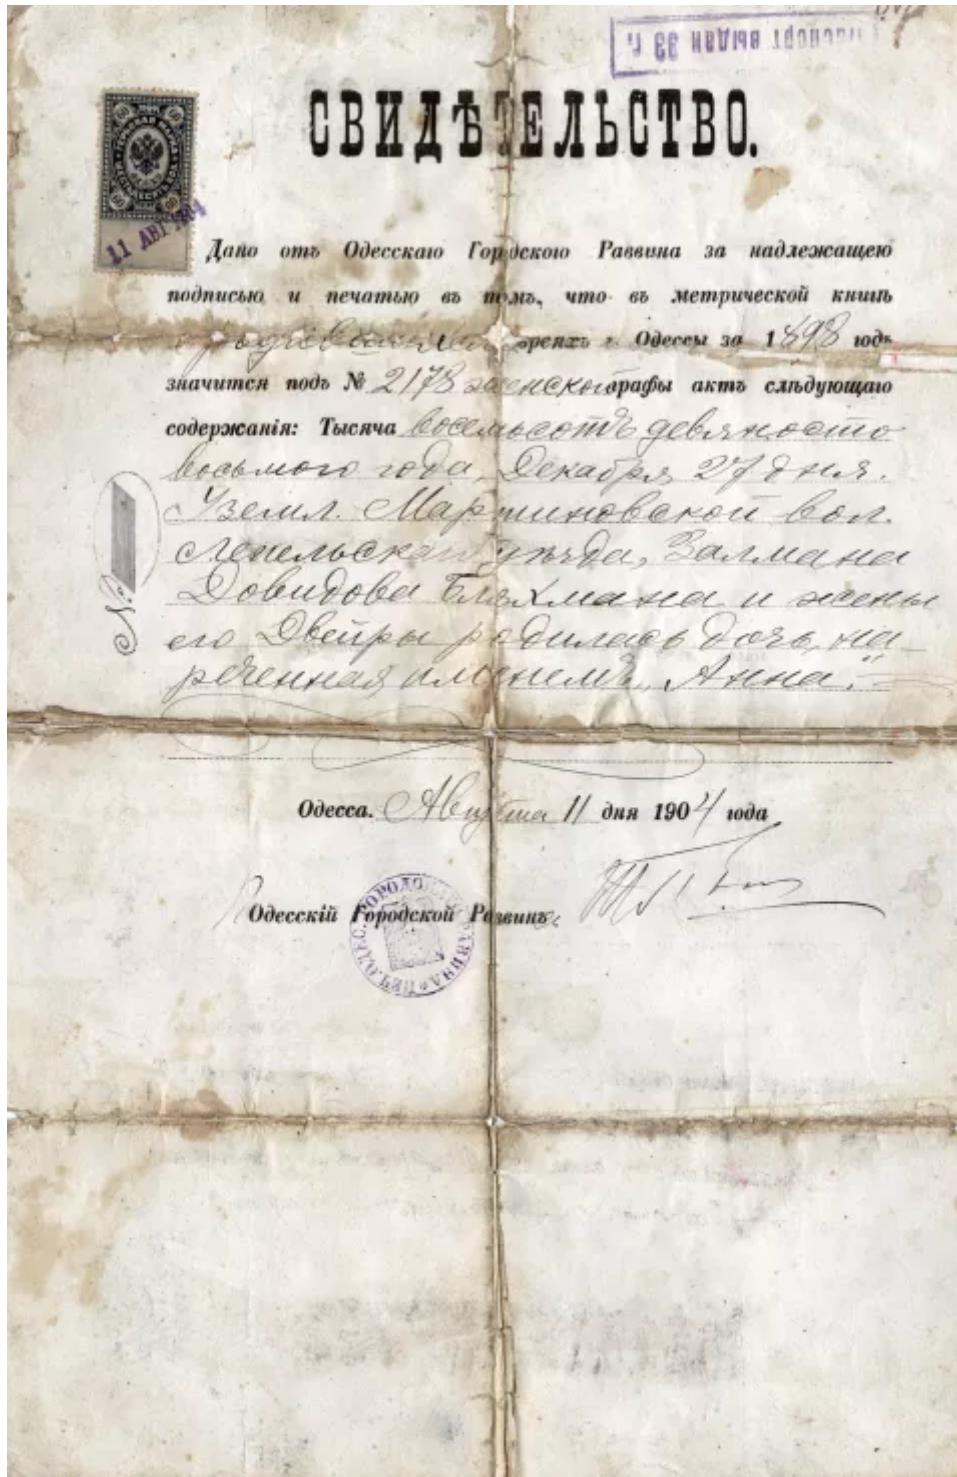 Паспорт выдан 33 г.
СВИДѢТЕЛЬСТВО.
ГЕРБОВАЯ МАРКА
60 60
60 60
11 АВГ 1904
Дано отъ Одесскаго Городского Раввина за надлежащею
подписью и печатью въ томъ, что въ метрической книгѣ
о родившихся евреяхъ г. Одессы за 1898 годъ
значится подъ № 2178 женской графы актъ слѣдующаго
содержанія: Тысяча восемьсотъ девяносто
восьмого года, Декабря 27 дня.
У земл. Мартиновской вол.
Лепельскаго уѣзда, Залмана
Довидова Бляхмана и жены
его Двейры родилась дочь, на-
реченная именемъ „Анна".
№
Одесса. Августа 11 дня 1904 года
Одесскій Городской Раввинъ
ПЕЧ. ОДЕС. ГОРОДОВ. РАВВИНА